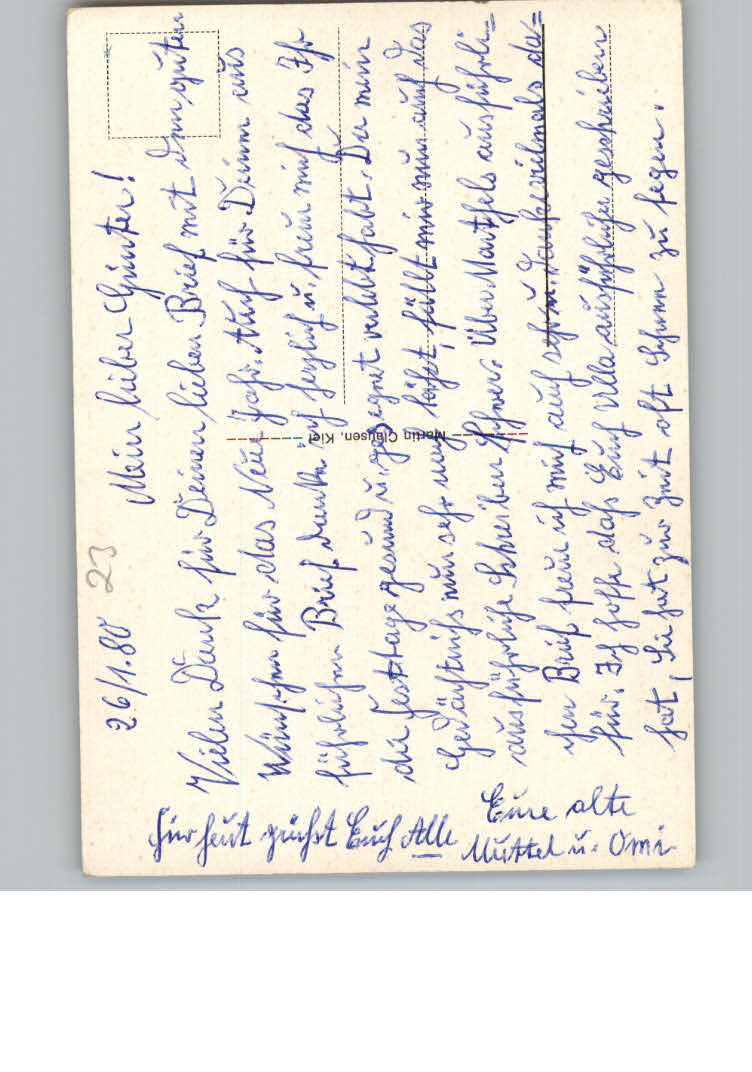 26/1.80 23
Mein lieber Günter!
Vielen Dank für Deinen lieben Brief mit den guten
Wünschen für das Neue Jahr. Auch für Deinen aus
führlichen Brief danke ich herzlich u. freue mich das Ihr
die Festtage gesund u. gesegnet verlebt habt. Da mein
Gedächtnis nun sehr nach läßt, fällt mir nun auch das
ausführliche Schreiben schwer. Über Marthels ausführli=
chen Brief freue ich mich auch sehr u. danke vielmals da=
für. Ich hoffe daß Euch Ulla ausführlicher geschrieben
hat, Sie hat zur Zeit oft Schnee zu fegen.
Für heut grüßt Euch Alle Eure alte
Muttel u. Omi
Martin Clausen, Kiel